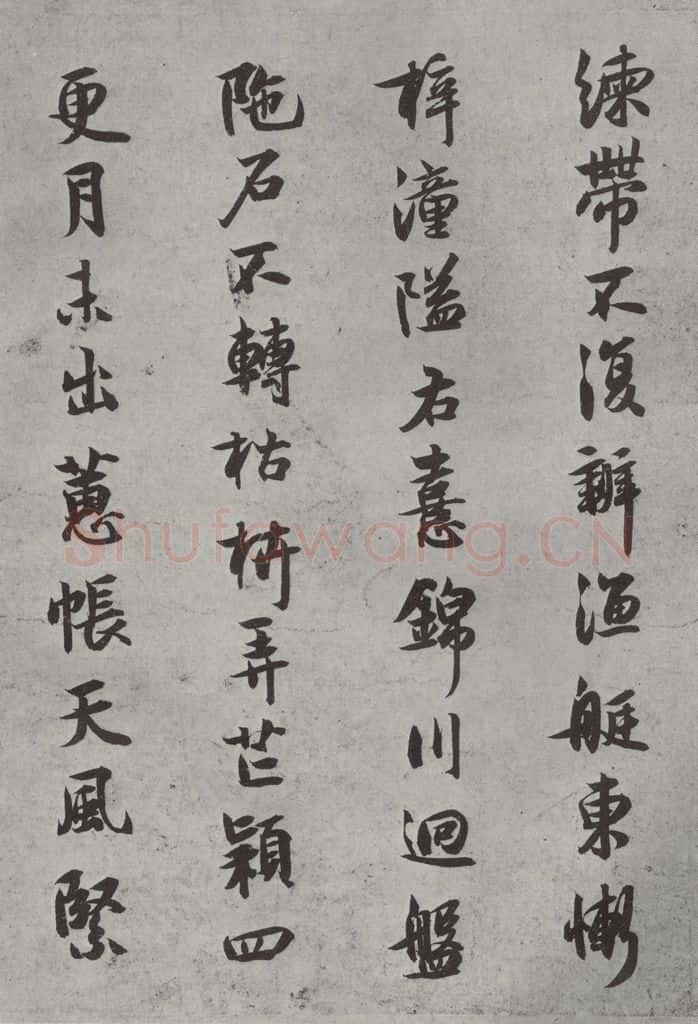 練帶不復辨漁艇東慚
梓潼隘右憙錦川迴盤
陁石不轉枯栟弄芒穎四
更月未出蕙帳天風緊
Shufawang.CN